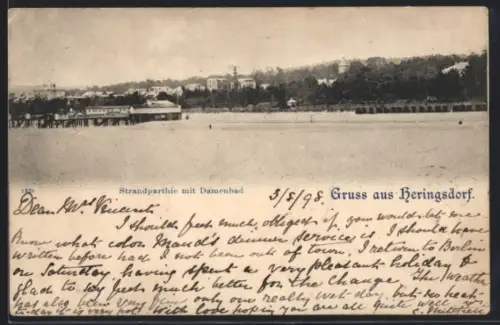 Strandparthie mit Damenbad
3/8/98
Gruss aus Heringsdorf.
Dear Mrs Vincent
I should feel much obliged if you would let me
know what color Maud's dinner service is. I should have
written before had I not been out of town. I return to Berlin
on Saturday having spent a very pleasant holiday &
glad to say feel much better for the change. The weather
has also been very fine, only one really wet day, but
to-day it is very hot With love hoping you are all quite
C. Mitchell